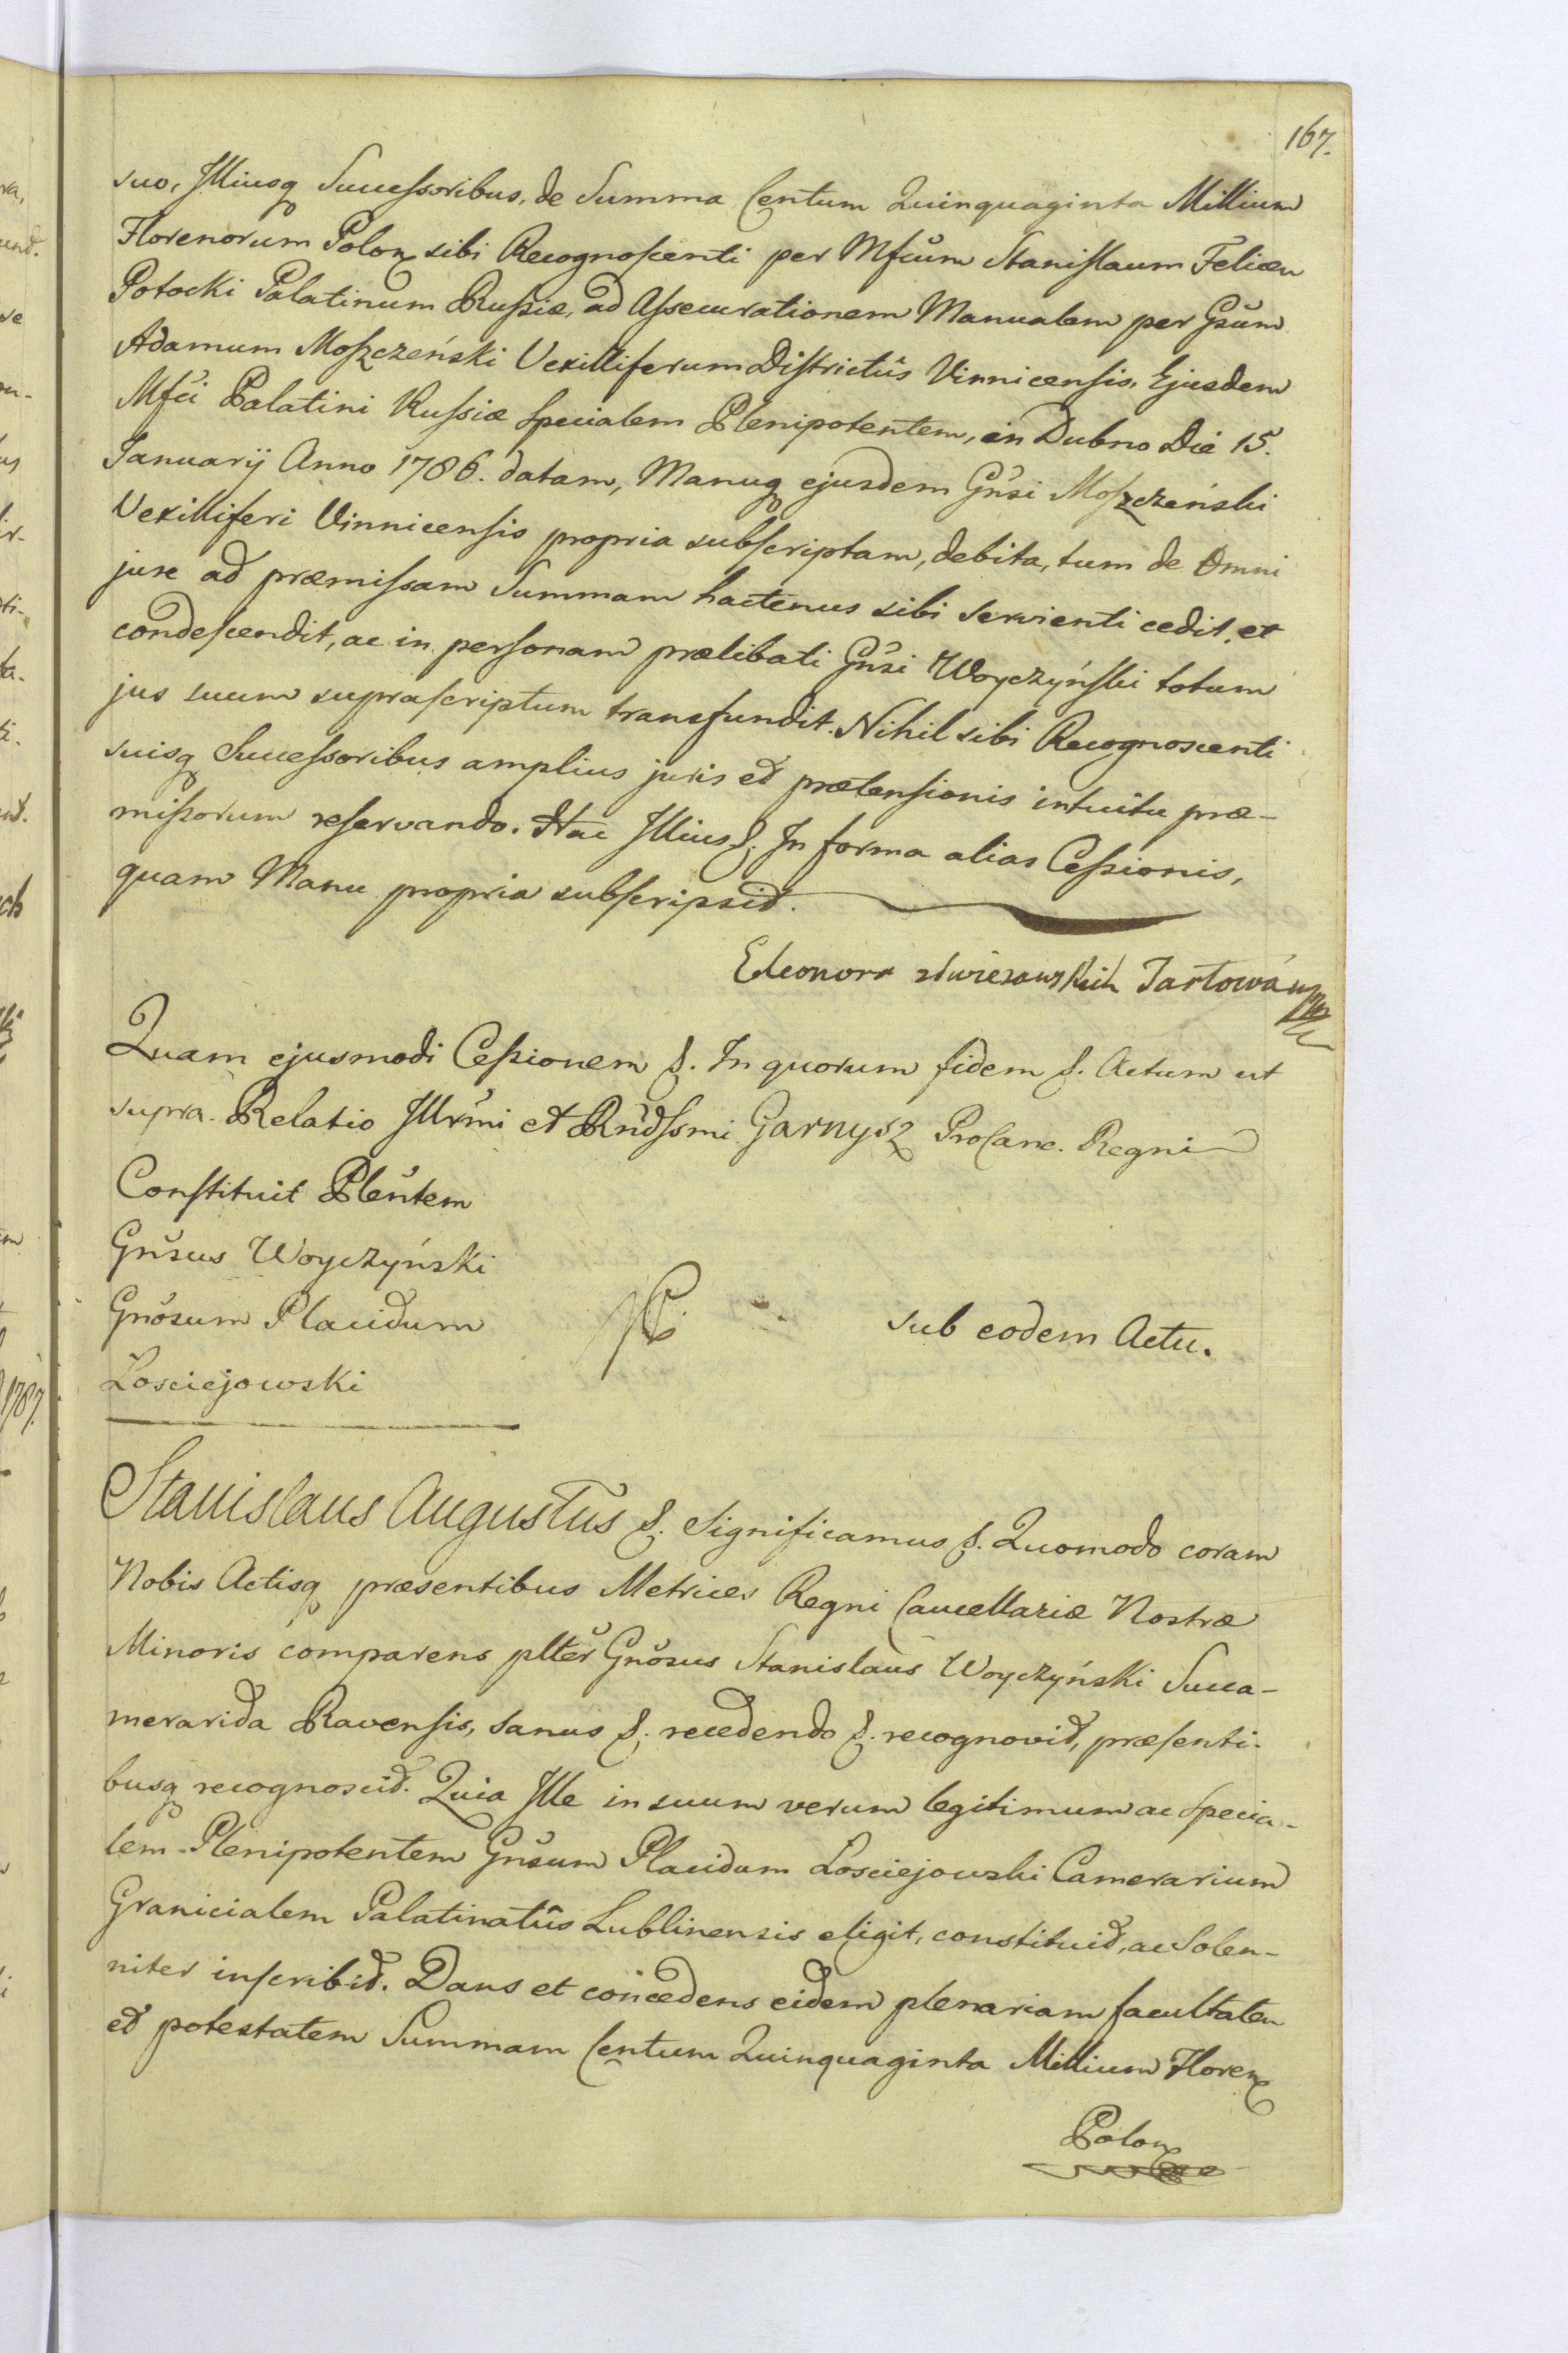 167.
suo, Illiusq Succeſsoribus, de Summa Centum Quinquaginta Millium
Florenorum Polon sibi Recognoſcenti per Mfcum Staniſlaum Felicem
Potocki Palatinum Ruſsiæ, ad Aſsecurationem Manualem per Gsum
Adamum Moſzczeński Vexilliferum Diſtrictûs Vinnicenſis, Ejusdem
Mfci Palatini Ruſsiæ Specialem Plenipotentem, in Dubno Die 15.
Januarij Anno 1786. datam, Manuq ejusdem Gnsi Moſzczeński
Vexilliferi Vinnicenſis propria subſcriptam, debita, tum de Omni
jure ad præmiſsam Summam hactenus sibi servienti cedit, et
condeſcendit, ac in perſonam prælibati Gnsi Woyczyńſki totum
jus suum supraſcriptum transfundit. Nihil sibi Recognoscenti
suisq Succeſsoribus amplius juris et prætenſionis intuitu præ-
miſsorum reſervando. Hac Illius &. In forma alias Ceſsionis,
quam Manu propria subſcripsit.
Eleonora Jarłowa
Quam ejusmodi Ceſsionem &. In quorum fidem &. Actum ut
supra. Relatio Illrmi et Rndſsmi Garnysz ProCanc. Regni
Conſtituit Plentem
Gnsus Woyczyński
Gnosum Placidum
Losciejowski
sub eodem Actu.
Stanislaus Augustus &. Significamus &. Quomodo coram
Nobis Actisq præsentibus Metrices Regni Cancellariæ Nostræ
Minoris comparens plter Gnosus Stanislaus Woyczyński Succa-
merarida Ravenſis, sanus &. recedendo &. recognovit, præſenti-
busq recognoscit. Quia Ille in suum verum legitimum ac Specia-
lem Plenipotentem Gnsum Placidum Losciejowski Camerarium
Granicialem Palatinatûs Lublinensis eligit, constituit, ac Solen-
niter inſcribit. Dans et concedens eidem plenariam facultatem
et potestatem Summam Centum Quinquaginta Millium Floren
Polon